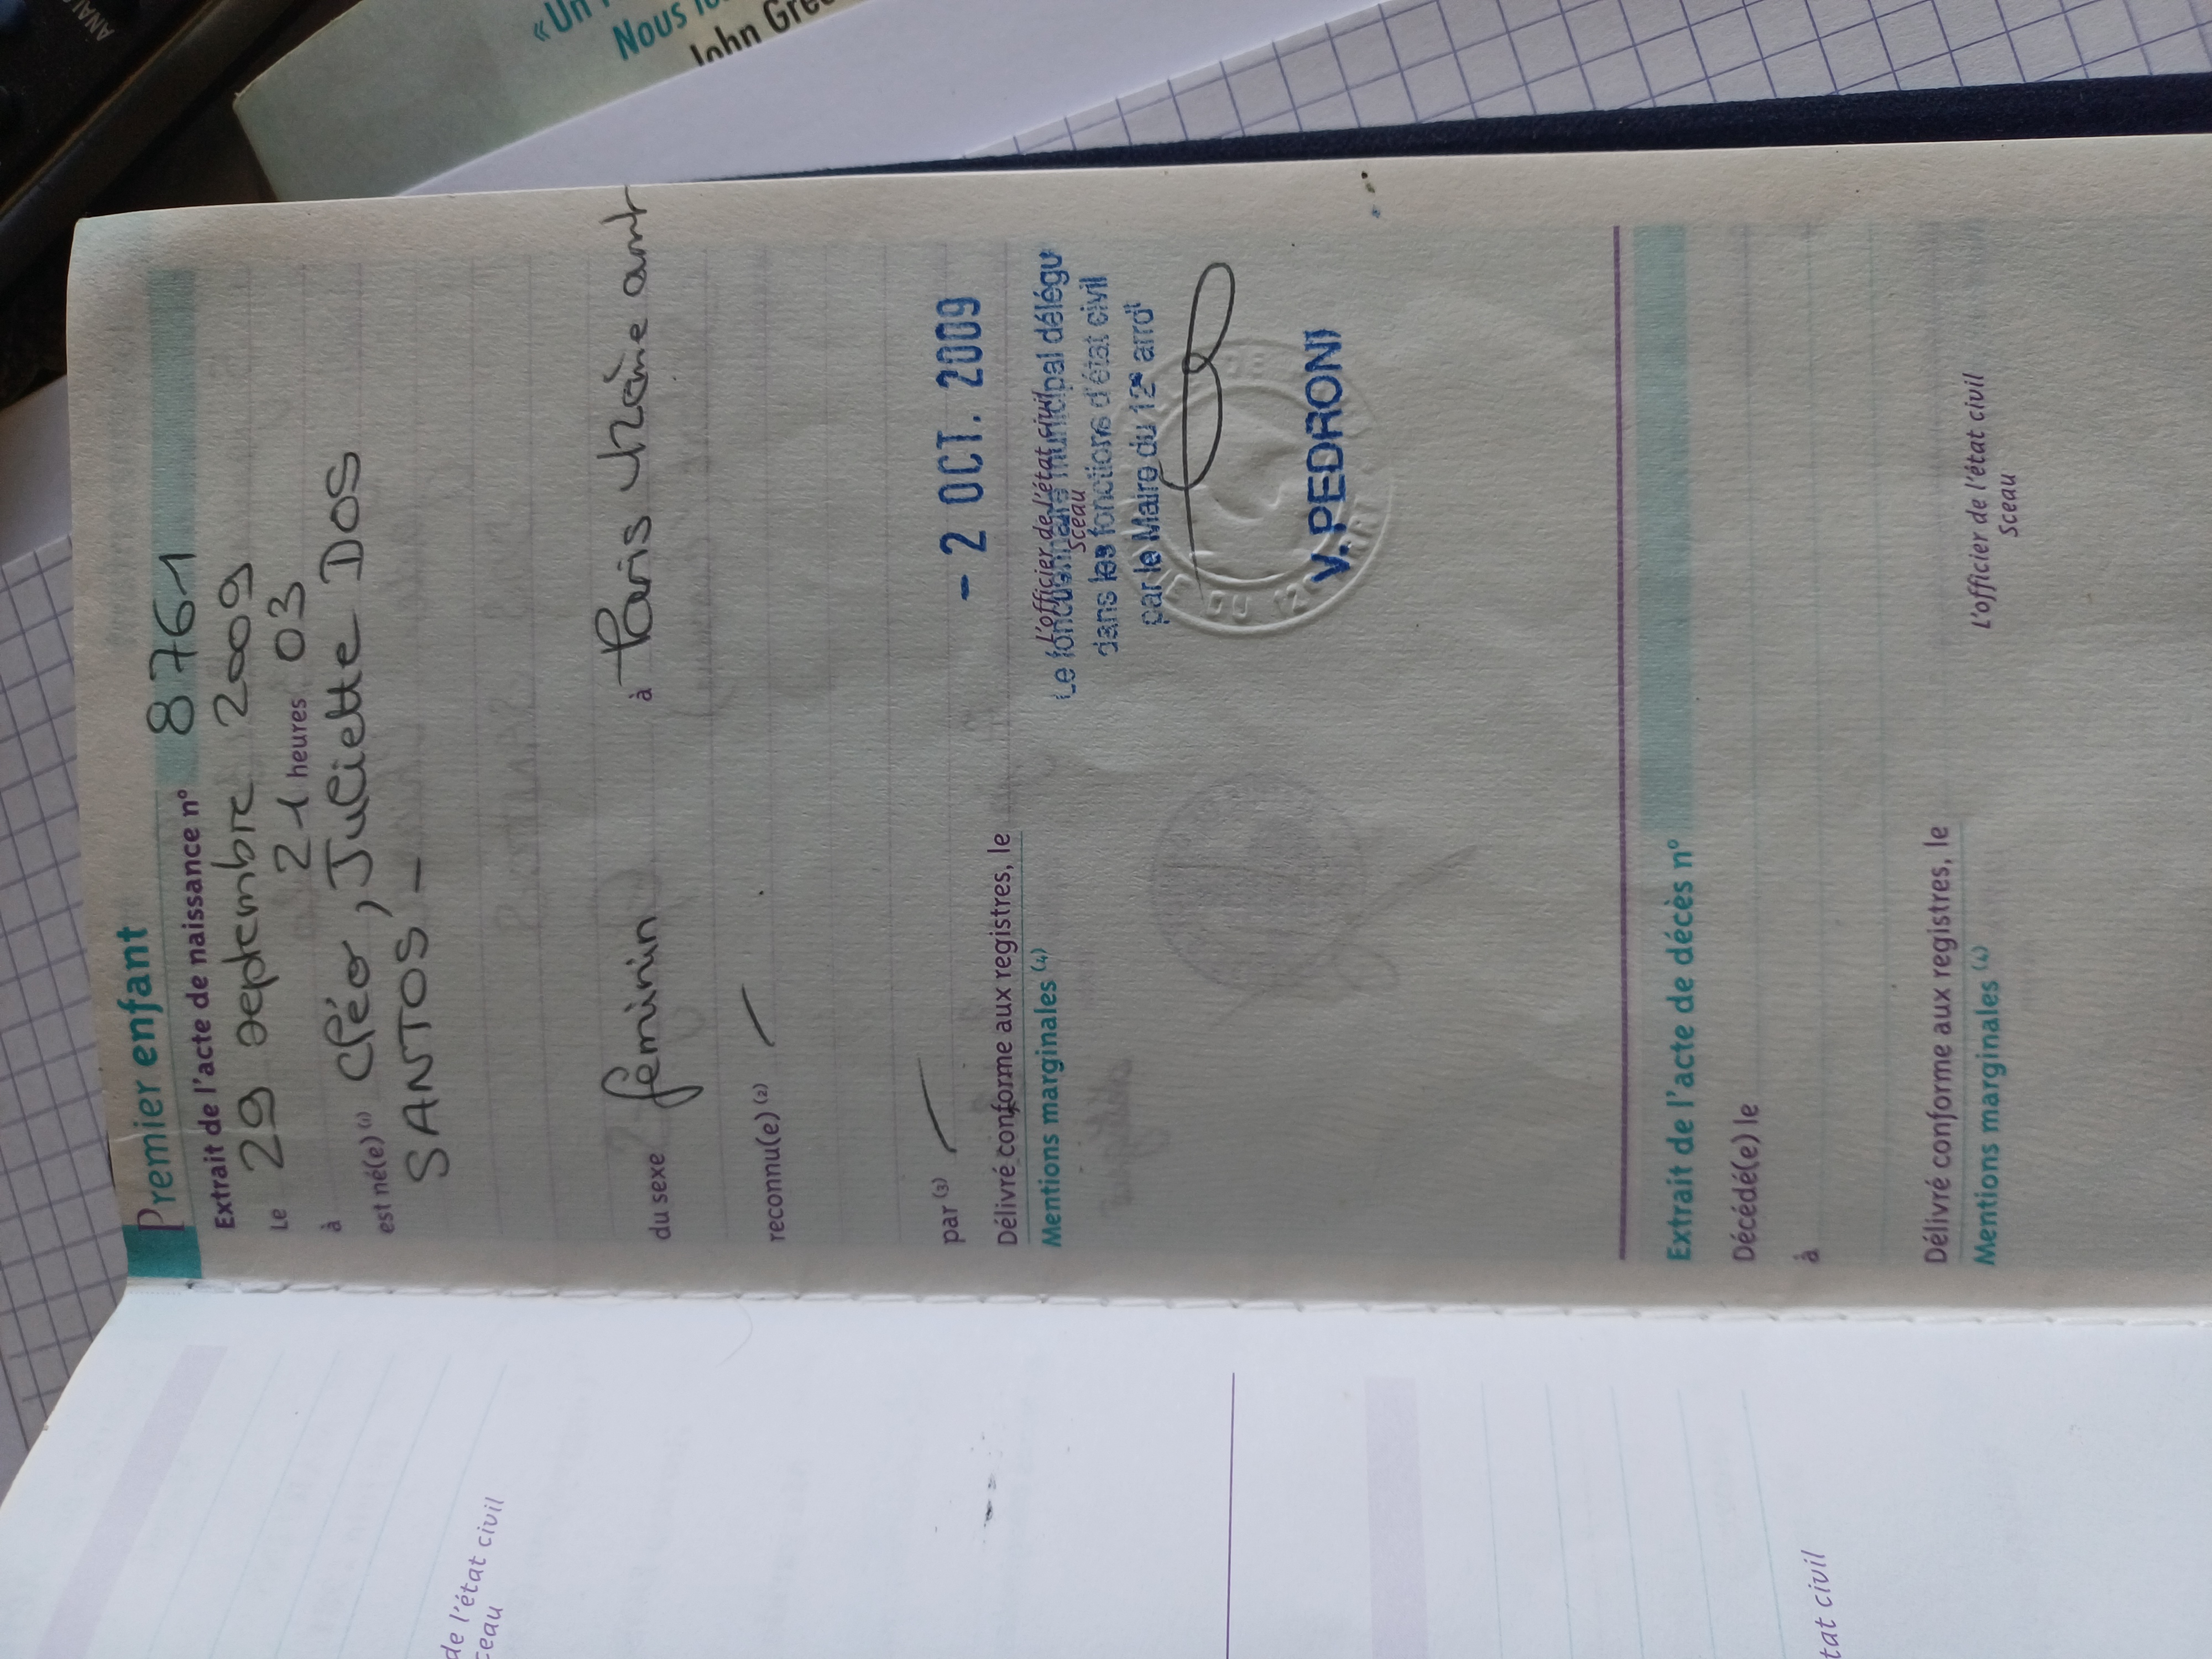 Premier enfant
Extrait de l'acte de naissance n° 8761
Le 29 septembre 2009
à 21 heures 03
est né(e) (1) Cléo, Juliette DOS
SANTOS -
du sexe féminin à Paris 12ème arrt
reconnu(e) (2)
par (3)
Délivré conforme aux registres, le - 2 OCT. 2009
Mentions marginales (4)
L'officier de l'état civil
Sceau
Le fonctionnaire municipal délégu
dans les fonctions d'état civil
par le Maire du 12e arrdt
DU 12
V. PEDRONI
Extrait de l'acte de décès n°
Décédé(e) le
à
Délivré conforme aux registres, le
Mentions marginales (4)
L'officier de l'état civil
Sceau
de l'état civil
ceau
tat civil
«Un
Nous
John Gree
ANAL